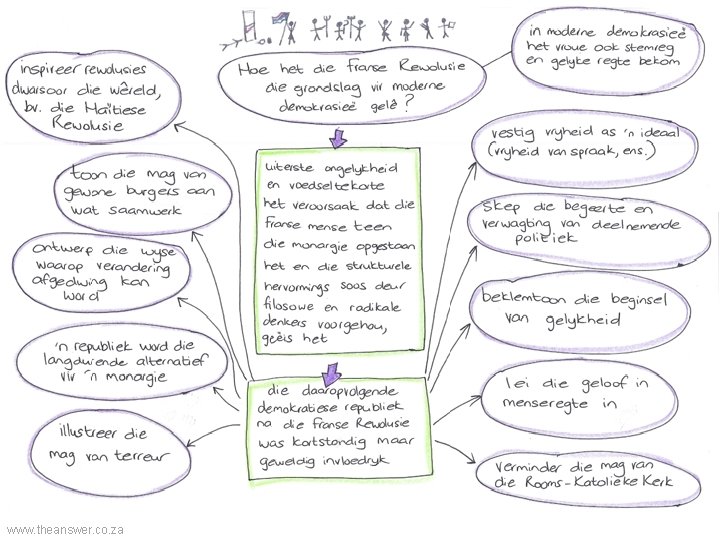 Hoe het die Franse Rewolusie
die grondslag vir moderne
demokrasieë gelê?
in moderne demokrasieë
het vroue ook stemreg
en gelyke regte bekom
inspireer rewolusies
dwarsoor die wêreld,
bv. die Haïtiese
Rewolusie
toon die mag van
gewone burgers aan
wat saamwerk
ontwerp die wyse
waarop verandering
afgedwing kan
word
'n republiek word die
langdurende alternatief
vir 'n monargie
illustreer die
mag van terreur
uiterste ongelykheid
en voedseltekorte
het veroorsaak dat die
Franse mense teen
die monargie opgestaan
het en die strukturele
hervormings soos deur
filosowe en radikale
denkers voorgehou,
geëis het
die daaropvolgende
demokratiese republiek
na die Franse Rewolusie
was kortstondig maar
geweldig invloedryk
vestig vryheid as 'n ideaal
(vryheid van spraak, ens.)
skep die begeerte en
verwagting van deelnemende
politiek
beklemtoon die beginsel
van gelykheid
lei die geloof in
menseregte in
verminder die mag van
die Rooms-Katolieke Kerk
www.theanswer.co.za